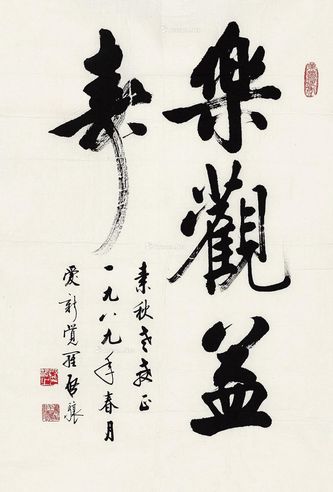 樂觀益
壽
素秋老友正
一九八九年春月
愛新覺羅啓驤